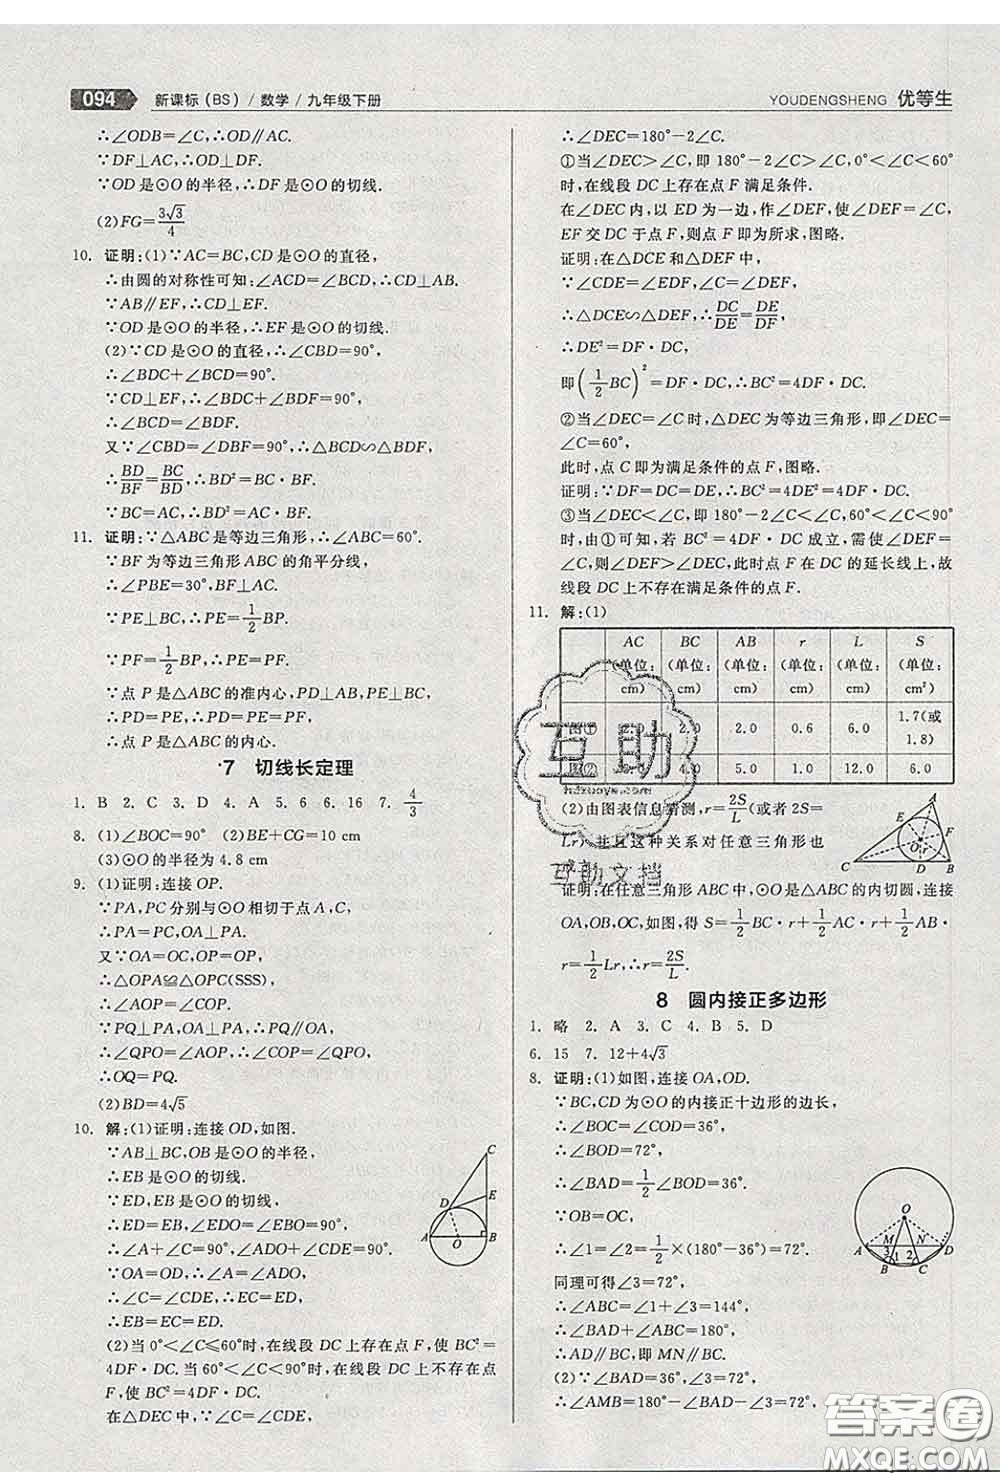 094 新课标(BS) / 数学 / 九年级下册
YOUDENGSHENG 优等生
∴∠ODB=∠C,∴OD∥AC.
∵DF⊥AC,∴OD⊥DF.
∵OD是⊙O的半径,∴DF是⊙O的切线.
(2)FG=3√3/4
10. 证明:(1)∵AC=BC,CD是⊙O的直径,
∴由圆的对称性可知:∠ACD=∠BCD,∴CD⊥AB.
∵AB∥EF,∴CD⊥EF.
∵OD是⊙O的半径,∴EF是⊙O的切线.
(2)∵CD是⊙O的直径,∴∠CBD=90°,
∴∠BDC+∠BCD=90°.
∵CD⊥EF,∴∠BDC+∠BDF=90°,
∴∠BCD=∠BDF.
又∵∠CBD=∠DBF=90°,∴△BDC∽△BFD,
∴BD/BF=BC/BD,∴BD²=BC·BF.
∵BC=AC,∴BD²=AC·BF.
11. 证明:∵△ABC是等边三角形,∴∠ABC=60°.
∵BF为等边三角形ABC的角平分线,
∴∠PBE=30°,BF⊥AC.
∵PE⊥BC,∴PE=1/2BP.
∵PF=1/2BP,∴PE=PF.
∵点P是△ABC的准内心,PD⊥AB,PE⊥BC,
∴PD=PE,∴PD=PE=PF,
∴点P是△ABC的内心.
*7 切线长定理
1. B 2. C 3. D 4. A 5. 6 6. 16 7. 4/3
8. (1)∠BOC=90° (2)BE+CG=10 cm
(3)⊙O的半径为4.8 cm
9. (1)证明:连接OP.
∵PA,PC分别与⊙O相切于点A,C,
∴PA=PC,OA⊥PA.
又∵OA=OC,OP=OP,
∴△OPA≌△OPC(SSS),
∴∠AOP=∠COP.
∵PQ⊥PA,OA⊥PA,∴PQ∥OA,
∴∠QPO=∠AOP,∴∠QPO=∠COP,
∴OQ=PQ.
(2)BD=4√5
10. 解:(1)证明:连接OD,如图.
∵AB⊥BC,OB是⊙O的半径,
∴EB是⊙O的切线.
∵ED,EB是⊙O的切线,
∴ED=EB,∠ADO+∠CDE=90°,
∴∠A+∠C=90°,∠ADO+∠CDE=90°.
∵OA=OD,∴∠A=∠ADO,
∴∠C=∠CDE,∴ED=EC,
∴EB=EC.
(2)当0°<∠C≤60°时,在线段DC上存在点F,使BC²=
4DF·DC.当60°<∠C<90°时,在线段DC上不存在点
F,使BC²=4DF·DC.
在△DEC中,∵∠C=∠CDE,
∴∠DEC=180°-2∠C.
①当∠DEC>∠C,即180°-2∠C>∠C,0°<∠C<60°
时,在线段DC上存在点F满足条件.
在∠DEC内,以ED为一边,作∠DEF,使∠DEF=∠C,
EF交DC于点F,则点F即为所求,图略.
证明:在△DCE和△DEF中,
∵∠CDE=∠EDF,∠C=∠DEF,
∴△DCE∽△DEF,∴DC/DE=DE/DF,
∴DE²=DF·DC,
即(1/2BC)²=DF·DC,∴BC²=4DF·DC.
②当∠DEC=∠C时,△DEC为等边三角形,即∠DEC=
∠C=60°,
此时,点C即为满足条件的点F,图略.
证明:∵DF=DC=DE,∴BC²=4DE²=4DF·DC.
③当∠DEC<∠C,即180°-2∠C<∠C,60°<∠C<90°
时,由①可知,若BC²=4DF·DC成立,需使∠DEF=
∠C,则∠DEF>∠DEC,此时点F在DC的延长线上,故
线段DC上不存在满足条件的点F.
11. 解:(1)
AC(单位:cm) BC(单位:cm) AB(单位:cm) r(单位:cm) L(单位:cm) S(单位:cm²)
2.0 2.0 0.6 6.0 1.7(或1.8)
4.0 5.0 1.0 12.0 6.0
(2)由图表信息猜测,r=2S/L(或者2S=
Lr),并且这种关系对任意三角形也
A F E O r C D B
证明:在任意三角形ABC中,⊙O是△ABC的内切圆,连接
OA,OB,OC,如图,得S=1/2BC·r+1/2AC·r+1/2AB·
r=1/2Lr,∴r=2S/L.
8 圆内接正多边形
1. 略 2. A 3. C 4. B 5. D
6. 15 7. 12+4√3
8. 证明:(1)如图,连接OA,OD.
∵BC,CD为⊙O的内接正十边形的边长,
∴∠BOC=∠COD=36°,
∴∠BOD=72°,
∴∠BAD=1/2∠BOD=36°.
∵OB=OC,
∴∠1=∠2=1/2×(180°-36°)=72°.
同理可得∠3=72°,
∴∠ABC=∠1+∠3=144°,
∴∠BAD+∠ABC=180°,
∴AD∥BC,即MN∥BC.
(2)∵∠BAD=36°,∠3=72°,
∴∠AMB=180°-∠BAD-∠3=72°,
C E D A O B
O M N A D 3 1 2 B C
互助
hdzuoye.com
互助文档
答案圈
MXQE.COM